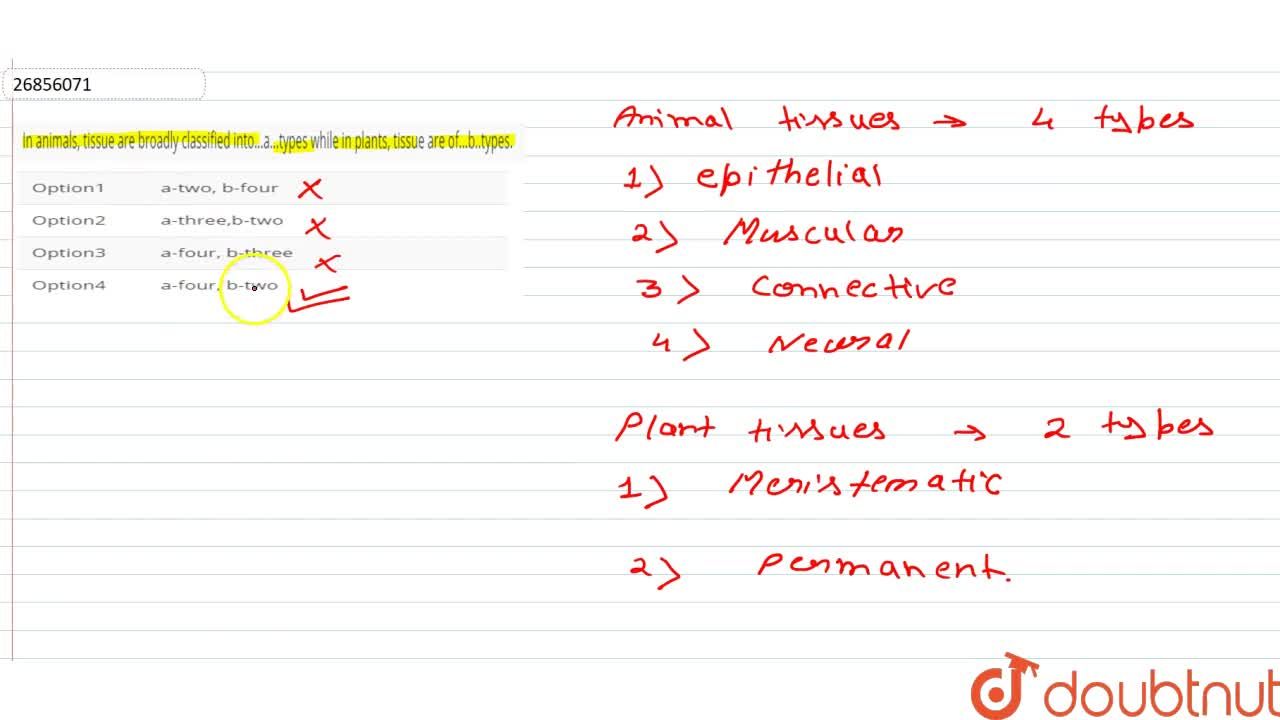 26856071
In animals, tissue are broadly classified into...a...types while in plants, tissue are of...b..types.
Option1 a-two, b-four
Option2 a-three,b-two
Option3 a-four, b-three
Option4 a-four, b-two
Animal tissues → 4 types
1> epithelial
2> Muscular
3> Connective
4> Neural
Plant tissues → 2 types
1> Meristematic
2> Permanent.
doubtnut